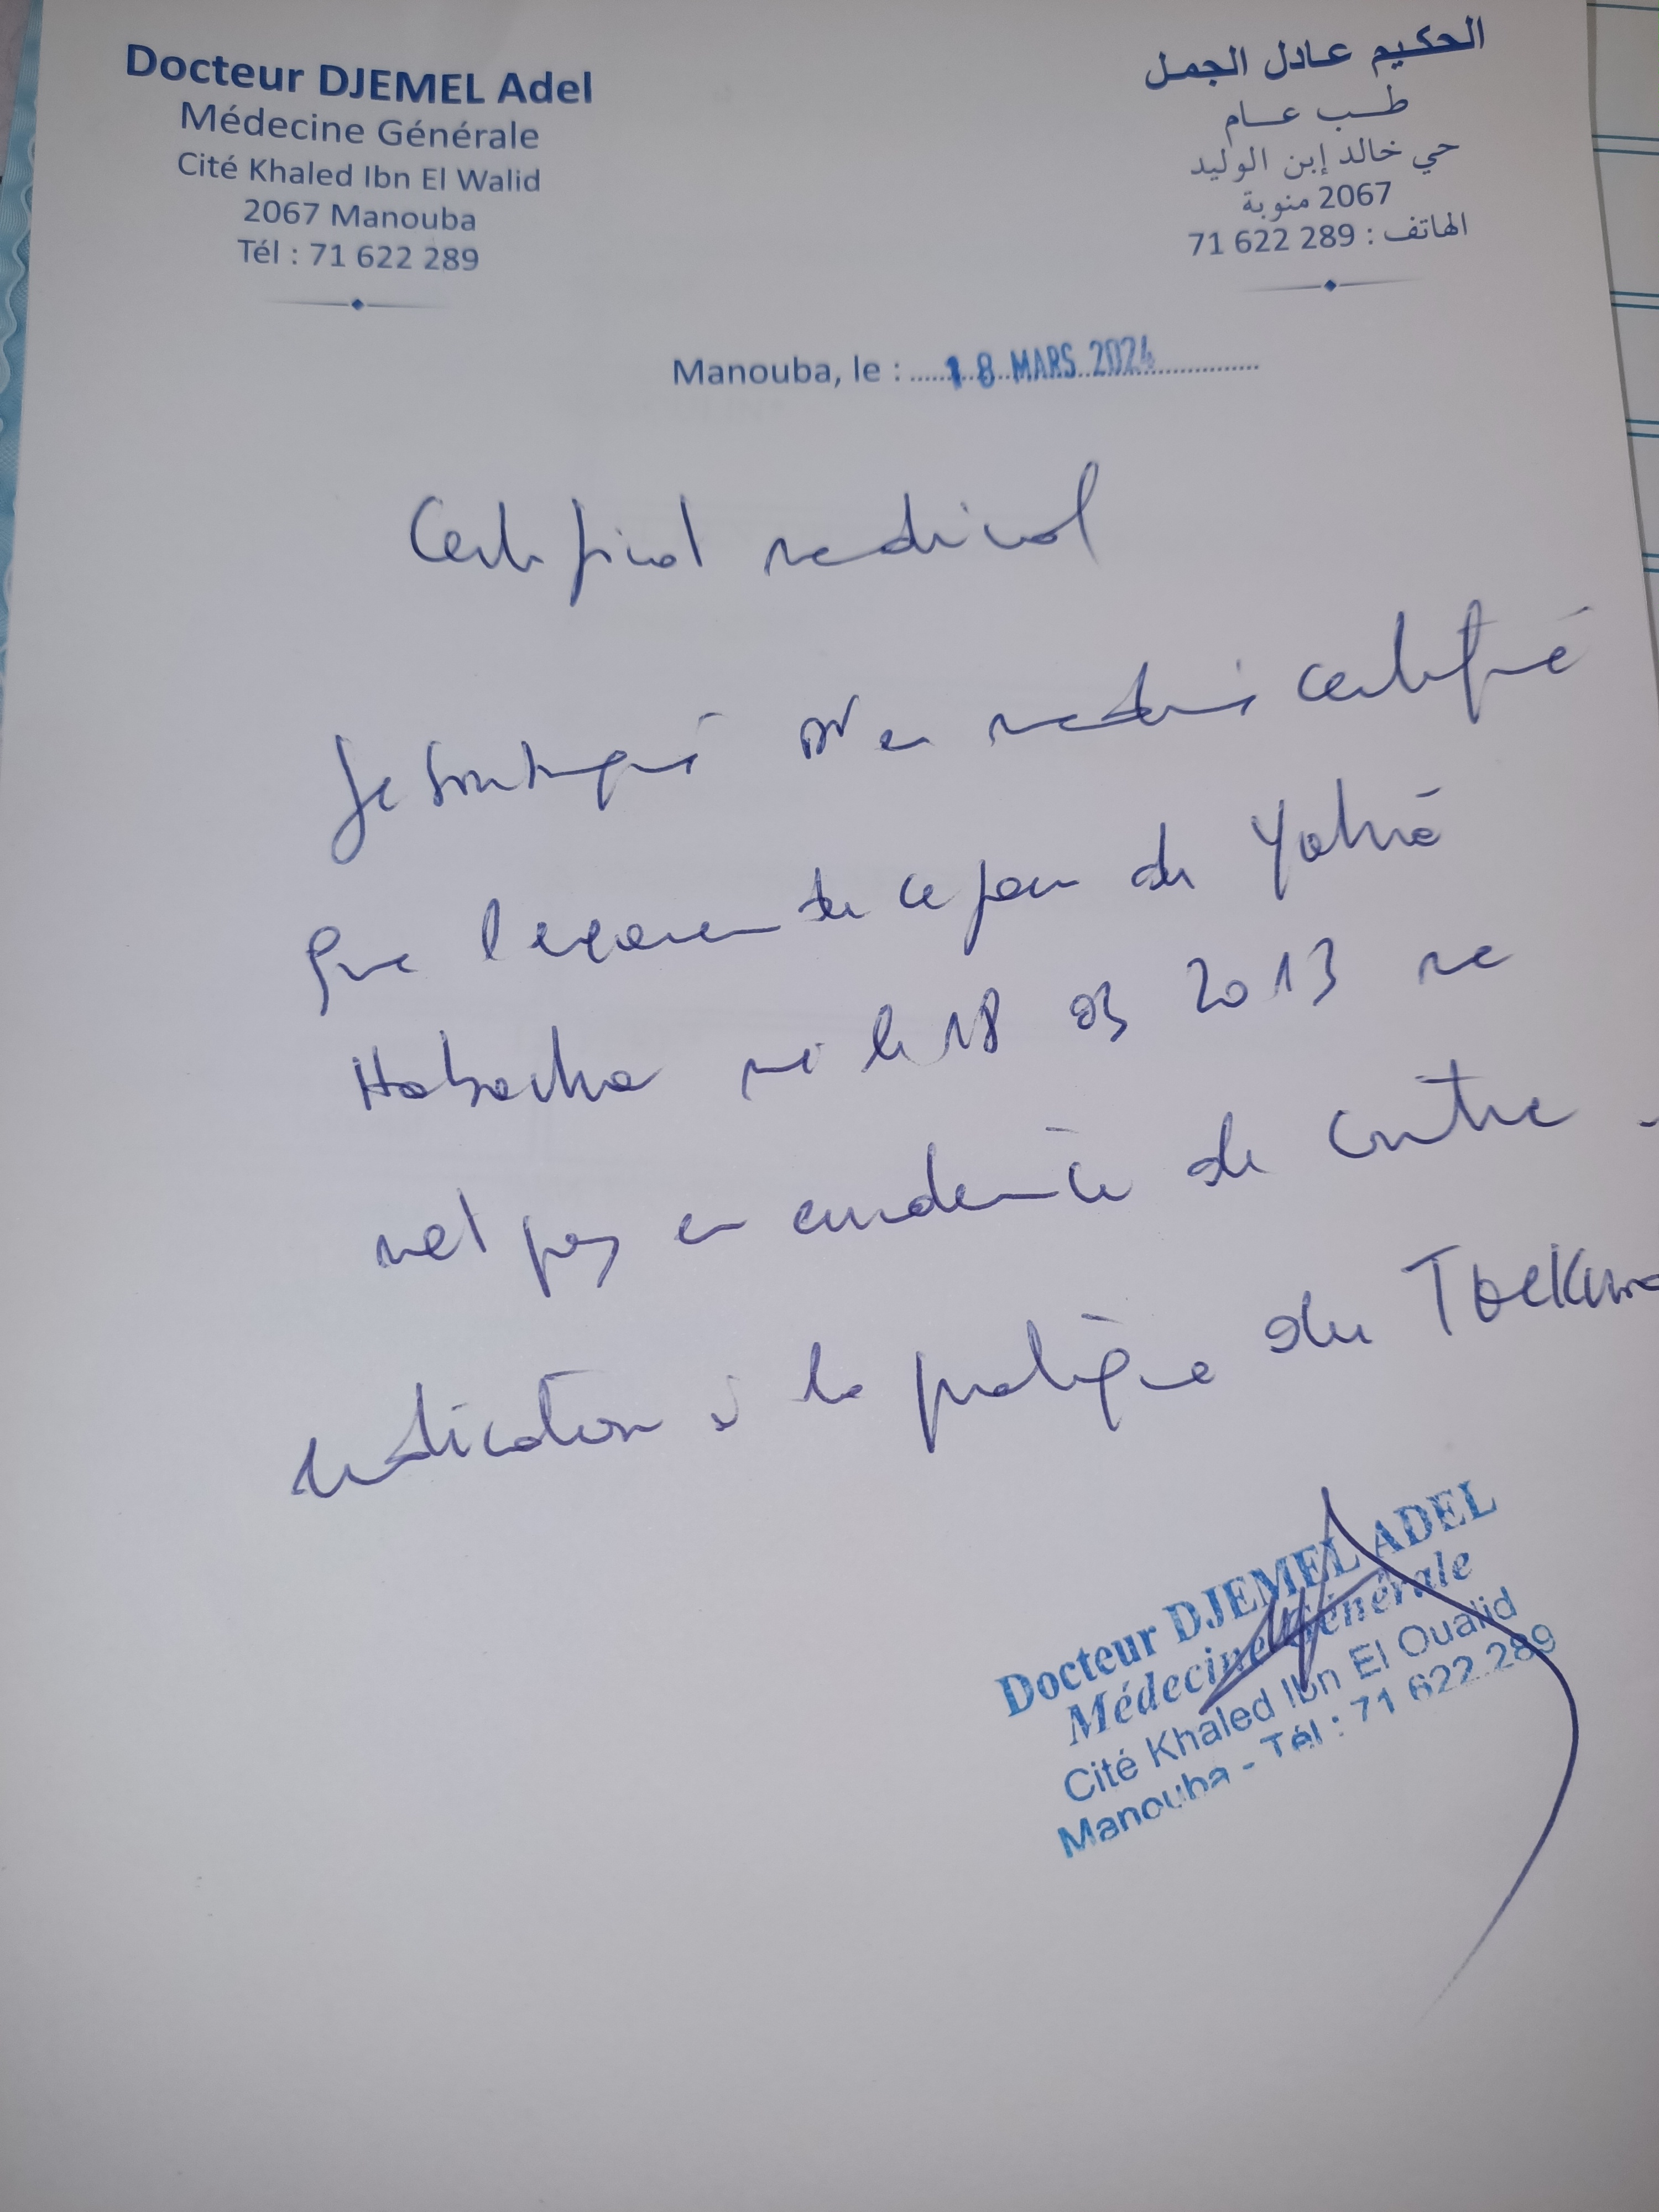 Docteur DJEMEL Adel
Médecine Générale
Cité Khaled Ibn El Walid
2067 Manouba
Tél : 71 622 289
الحكيم عادل الجمل
طب عام
حي خالد إبن الوليد
2067 منوبة
الهاتف : 71 622 289
Manouba, le : 18 MARS 2024
Certificat medical
Je soussigné Dr en medecine certifié
que l'examen de ce jour de Yahia
né le 18 03 2013 ne
met pas en evidence de contre -
indication à la pratique du
Docteur DJEMEL ADEL
Médecine Générale
Cité Khaled Ibn El Oualid
Manouba - Tél : 71 622 289